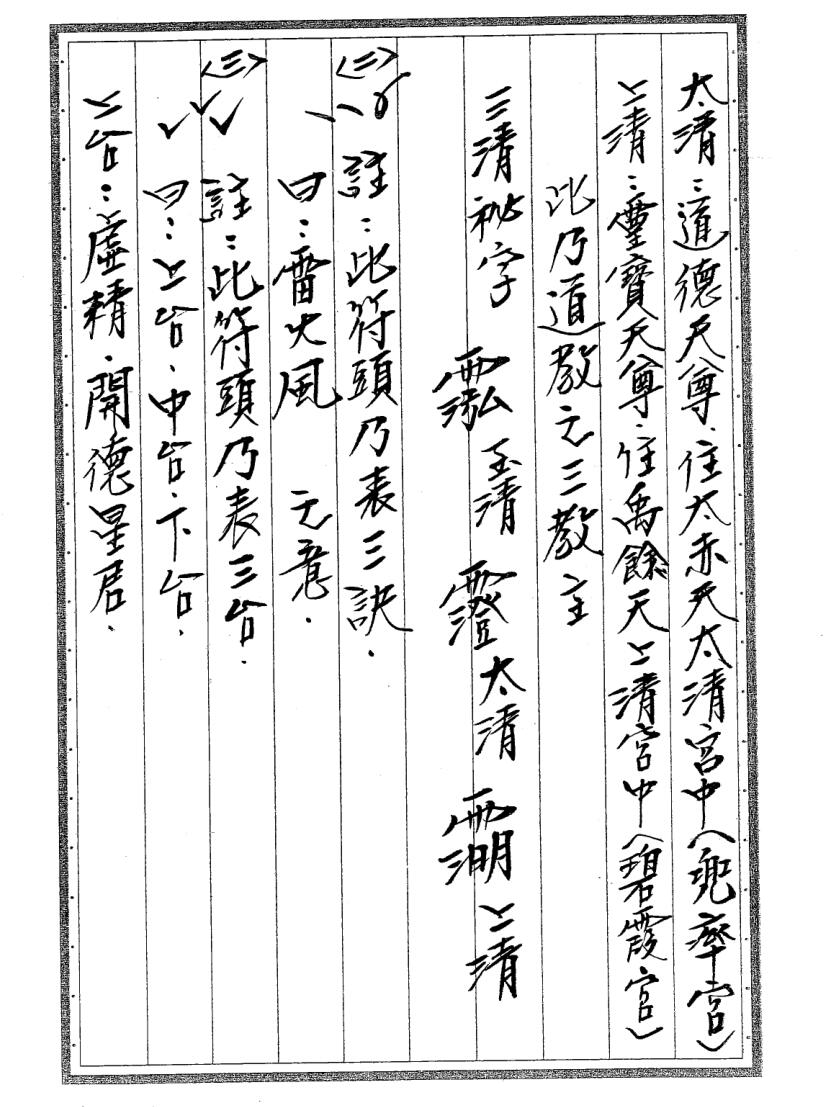 太清：道德天尊．住太赤天太清宮中（兜率宮）
上清：靈寶天尊．住禹餘天上清宮中（碧霞宮）
此乃道教之三教主
三清祕字 玉清 太清 上清
〈二〉 註：此符頭乃表三訣．
曰：雷火風 之意．
〈三〉 註：此符頭乃表三台．
曰：上台．中台．下台．
上台：虛精．開德星君．